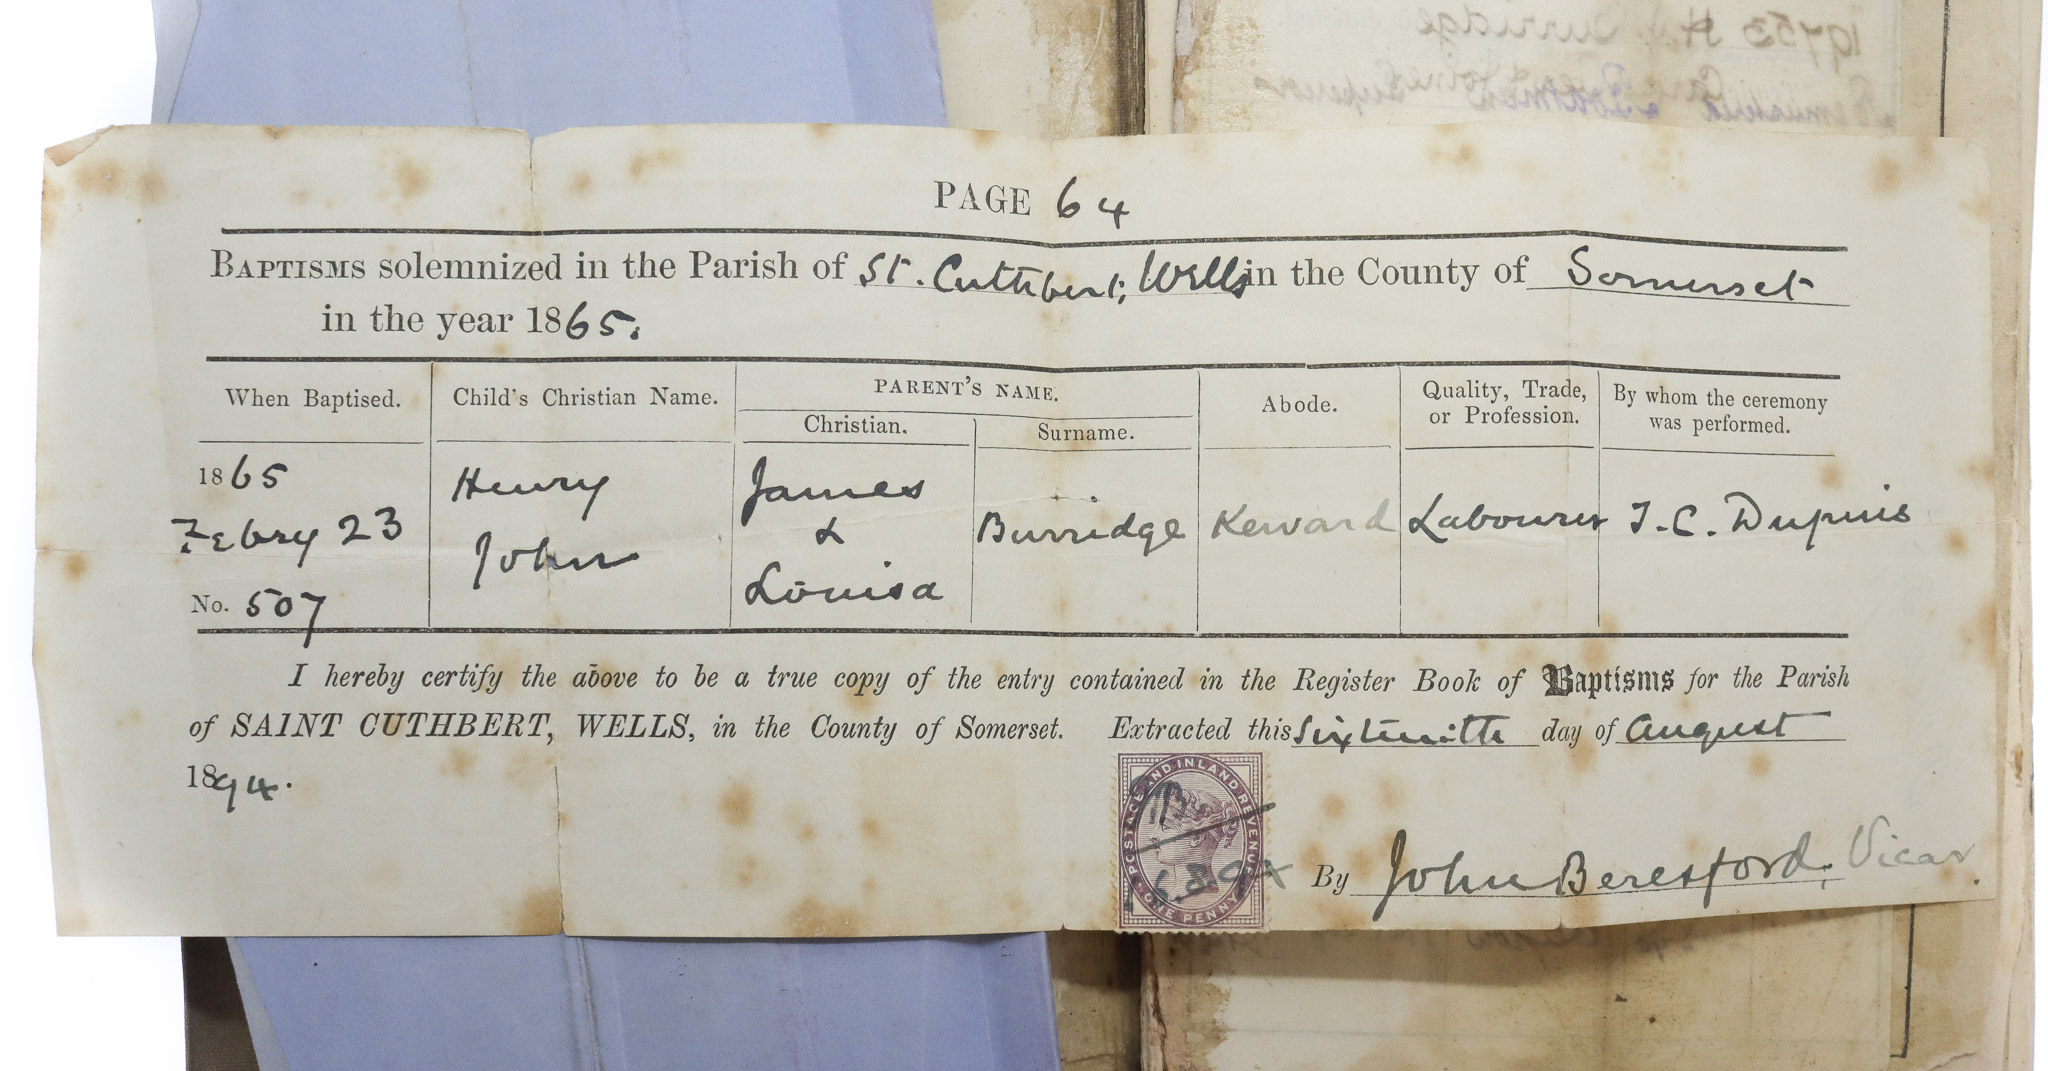 PAGE 64
BAPTISMS solemnized in the Parish of St. Cuthbert, Wells in the County of Somerset
in the year 1865.
When Baptised. Child's Christian Name. PARENT'S NAME. Abode. Quality, Trade, or Profession. By whom the ceremony was performed.
Christian. Surname.
1865
Febry 23
No. 507
Henry
John
James
&
Louisa
Burridge
Keward
Labourer
T. C. Dupuis
I hereby certify the above to be a true copy of the entry contained in the Register Book of Baptisms for the Parish
of SAINT CUTHBERT, WELLS, in the County of Somerset. Extracted this Sixteenth day of August
1894.
POSTAGE AND INLAND REVENUE
ONE PENNY
By John Beresford, Vicar.